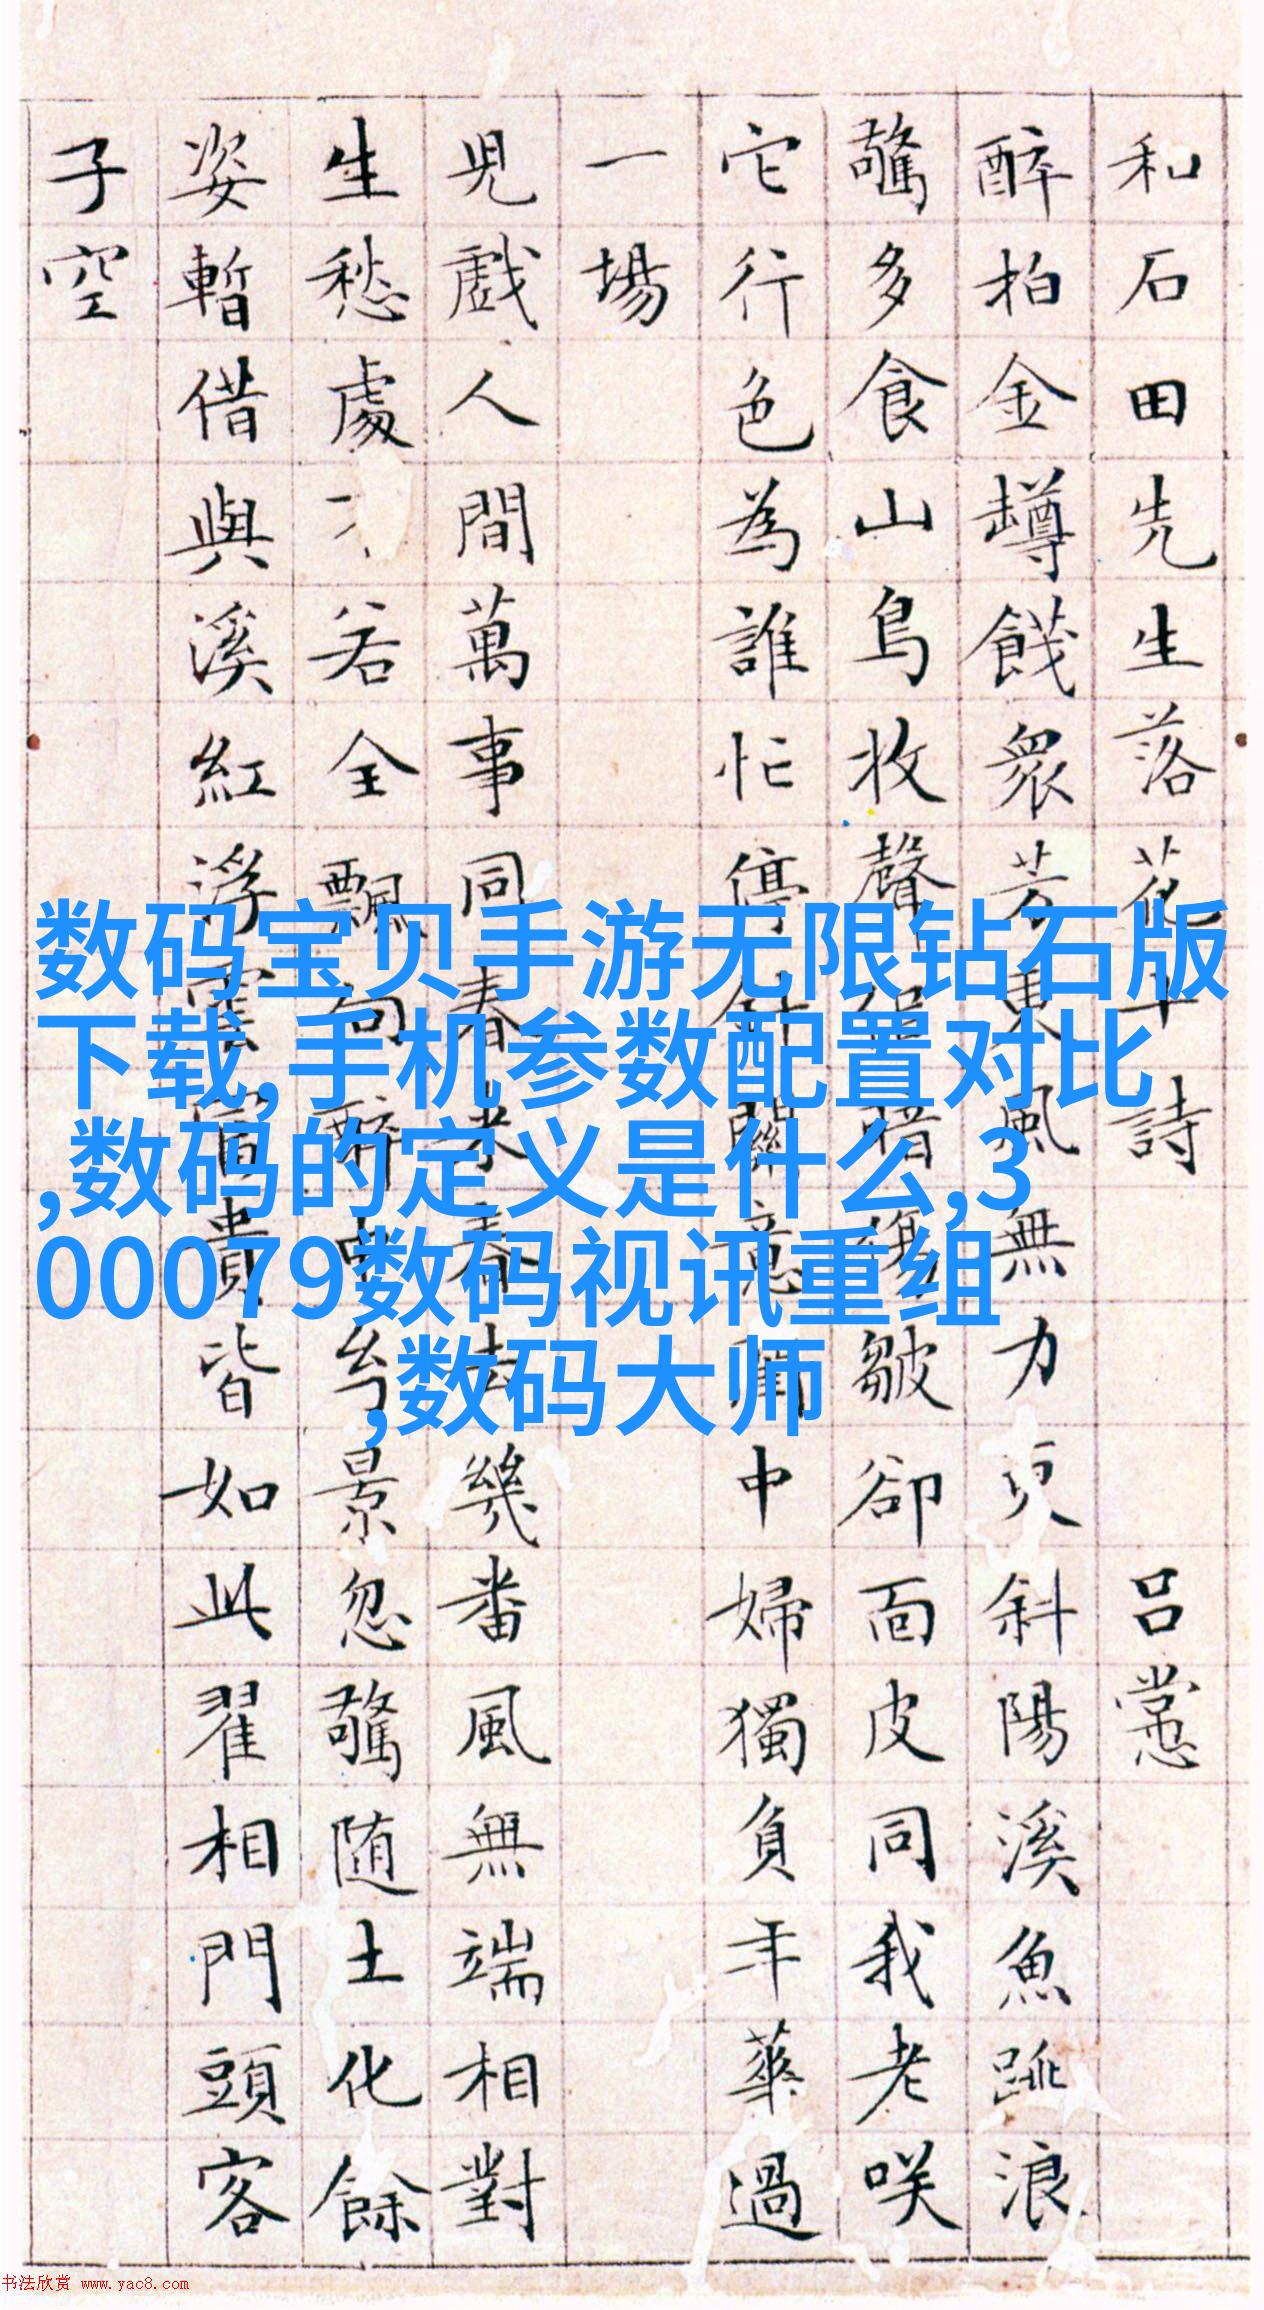 和石田先生落花十詩 呂㦂
醉拍金罇餞衆芳東風無力更斜陽溪魚跳浪
驚多食山鳥收聲惜皺卻面皮同我老咲
它行色為誰忙停針意閨中婦獨負年華過
一場
兒戲人間萬事同春來春去幾番風無端相對
生愁處若全飄向醉中景忽驚隨土化餘
姿暫借與溪紅浮雲富貴皆如此翟相門頭客
子空
数码宝贝手游无限钻石版
下载,手机参数配置对比
,数码的定义是什么,3
00079数码视讯重组
,数码大师
书法欣赏 www.yac8.com